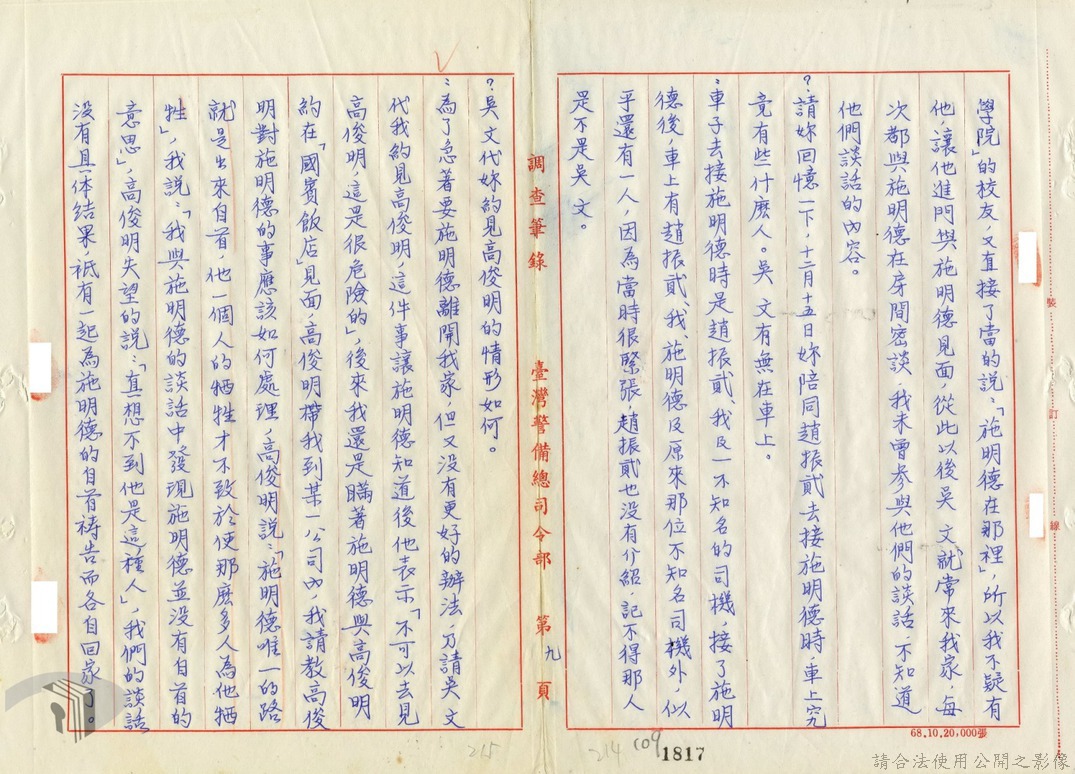 學院」的校友,又直接了當的說:「施明德在那裡」,所以我不疑有
他讓他進門與施明德見面,從此以後吳 文就常來我家,每
次都與施明德在房間密談,我未曾參與他們的談話,不知道
他們談話的內容。
?請妳回憶一下,十二月十五日妳陪同趙振貳去接施明德時車上究
竟有些什麽人。吳 文有無在車上。
:車子去接施明德時是趙振貳、我及一不知名的司機,接了施明
德後,車上有趙振貳、我、施明德及原來那位不知名司機外,似
乎還有一人,因為當時很緊張 趙振貳也没有介紹,記不得那人
是不是吳 文。
調查筆錄 臺灣警備總司令部 第九頁
?吳 文代妳約見高俊明的情形如何。
:為了急著要施明德離開我家,但又没有更好的辦法,乃請吳 文
代我約見高俊明,這件事讓施明德知道後他表示「不可以去見
高俊明,這是很危險的」,後來我還是瞞著施明德與高俊明
約在「國賓飯店」見面,高俊明帶我到某一公司內,我請教高俊
明對施明德的事應該如何處理,高俊明說:「施明德唯一的路
就是出來自首,他一個人的牺牲才不致於使那麽多人為他牺
牲」,我說:「我與施明德的談話中發現施明德並没有自首的
意思」,高俊明失望的說:「真想不到他是這種人」,我們的談話
没有具体結果,祇有一起為施明德的自首禱告而各自回家了。
裝
訂
線
68.10.20,000張
215
214
109
1817
請合法使用公開之影像